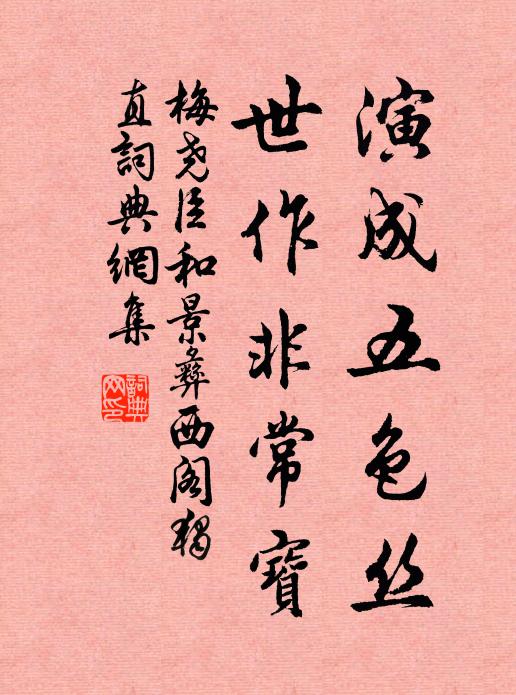 演成五色丝
世作非常寶
梅尧臣和景彝西阁独
直詞典網集
詞典網印